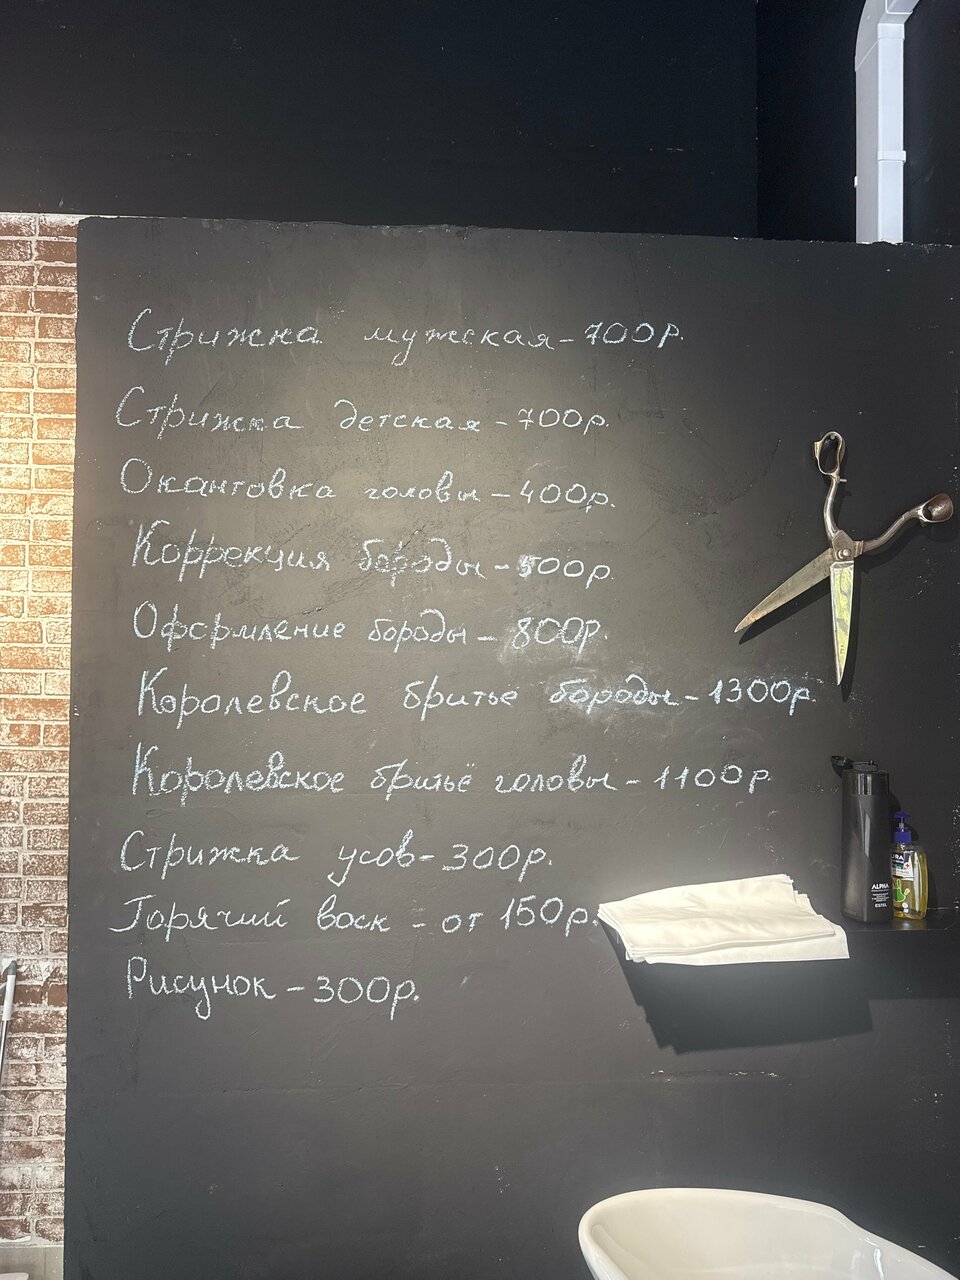 Стрижка мужская - 700р.
Стрижка детская - 700р.
Окантовка головы - 400р.
Коррекция бороды - 500р.
Оформление бороды - 800р.
Королевское бритье бороды - 1300р.
Королевское бритьё головы - 1100р.
Стрижка усов - 300р.
Горячий воск - от 150р.
Рисунок - 300р.
ALPHA
ESTEL